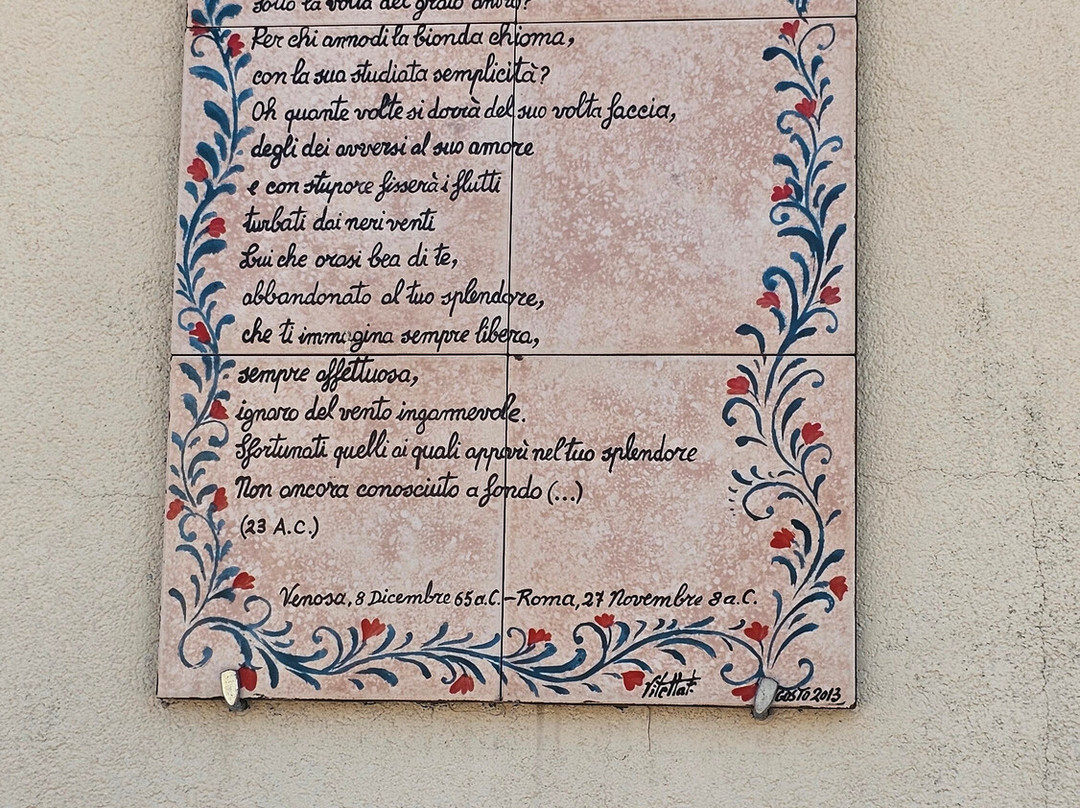 sotto la volta del grato antro?
Per chi annodi la bionda chioma,
con la sua studiata semplicità?
Oh quante volte si dorrà del suo volta faccia,
degli dei avversi al suo amore
e con stupore fisserà i flutti
turbati dai neri venti
Lui che orasi bea di te,
abbandonato al tuo splendore,
che ti immagina sempre libera,
sempre affettuosa,
ignaro del vento ingannevole.
Sfortunati quelli ai quali appari nel tuo splendore
Non ancora conosciuto a fondo (...)
(23 A.C.)
Venosa, 8 Dicembre 65 a.C. - Roma, 27 Novembre 8 a.C.
2013